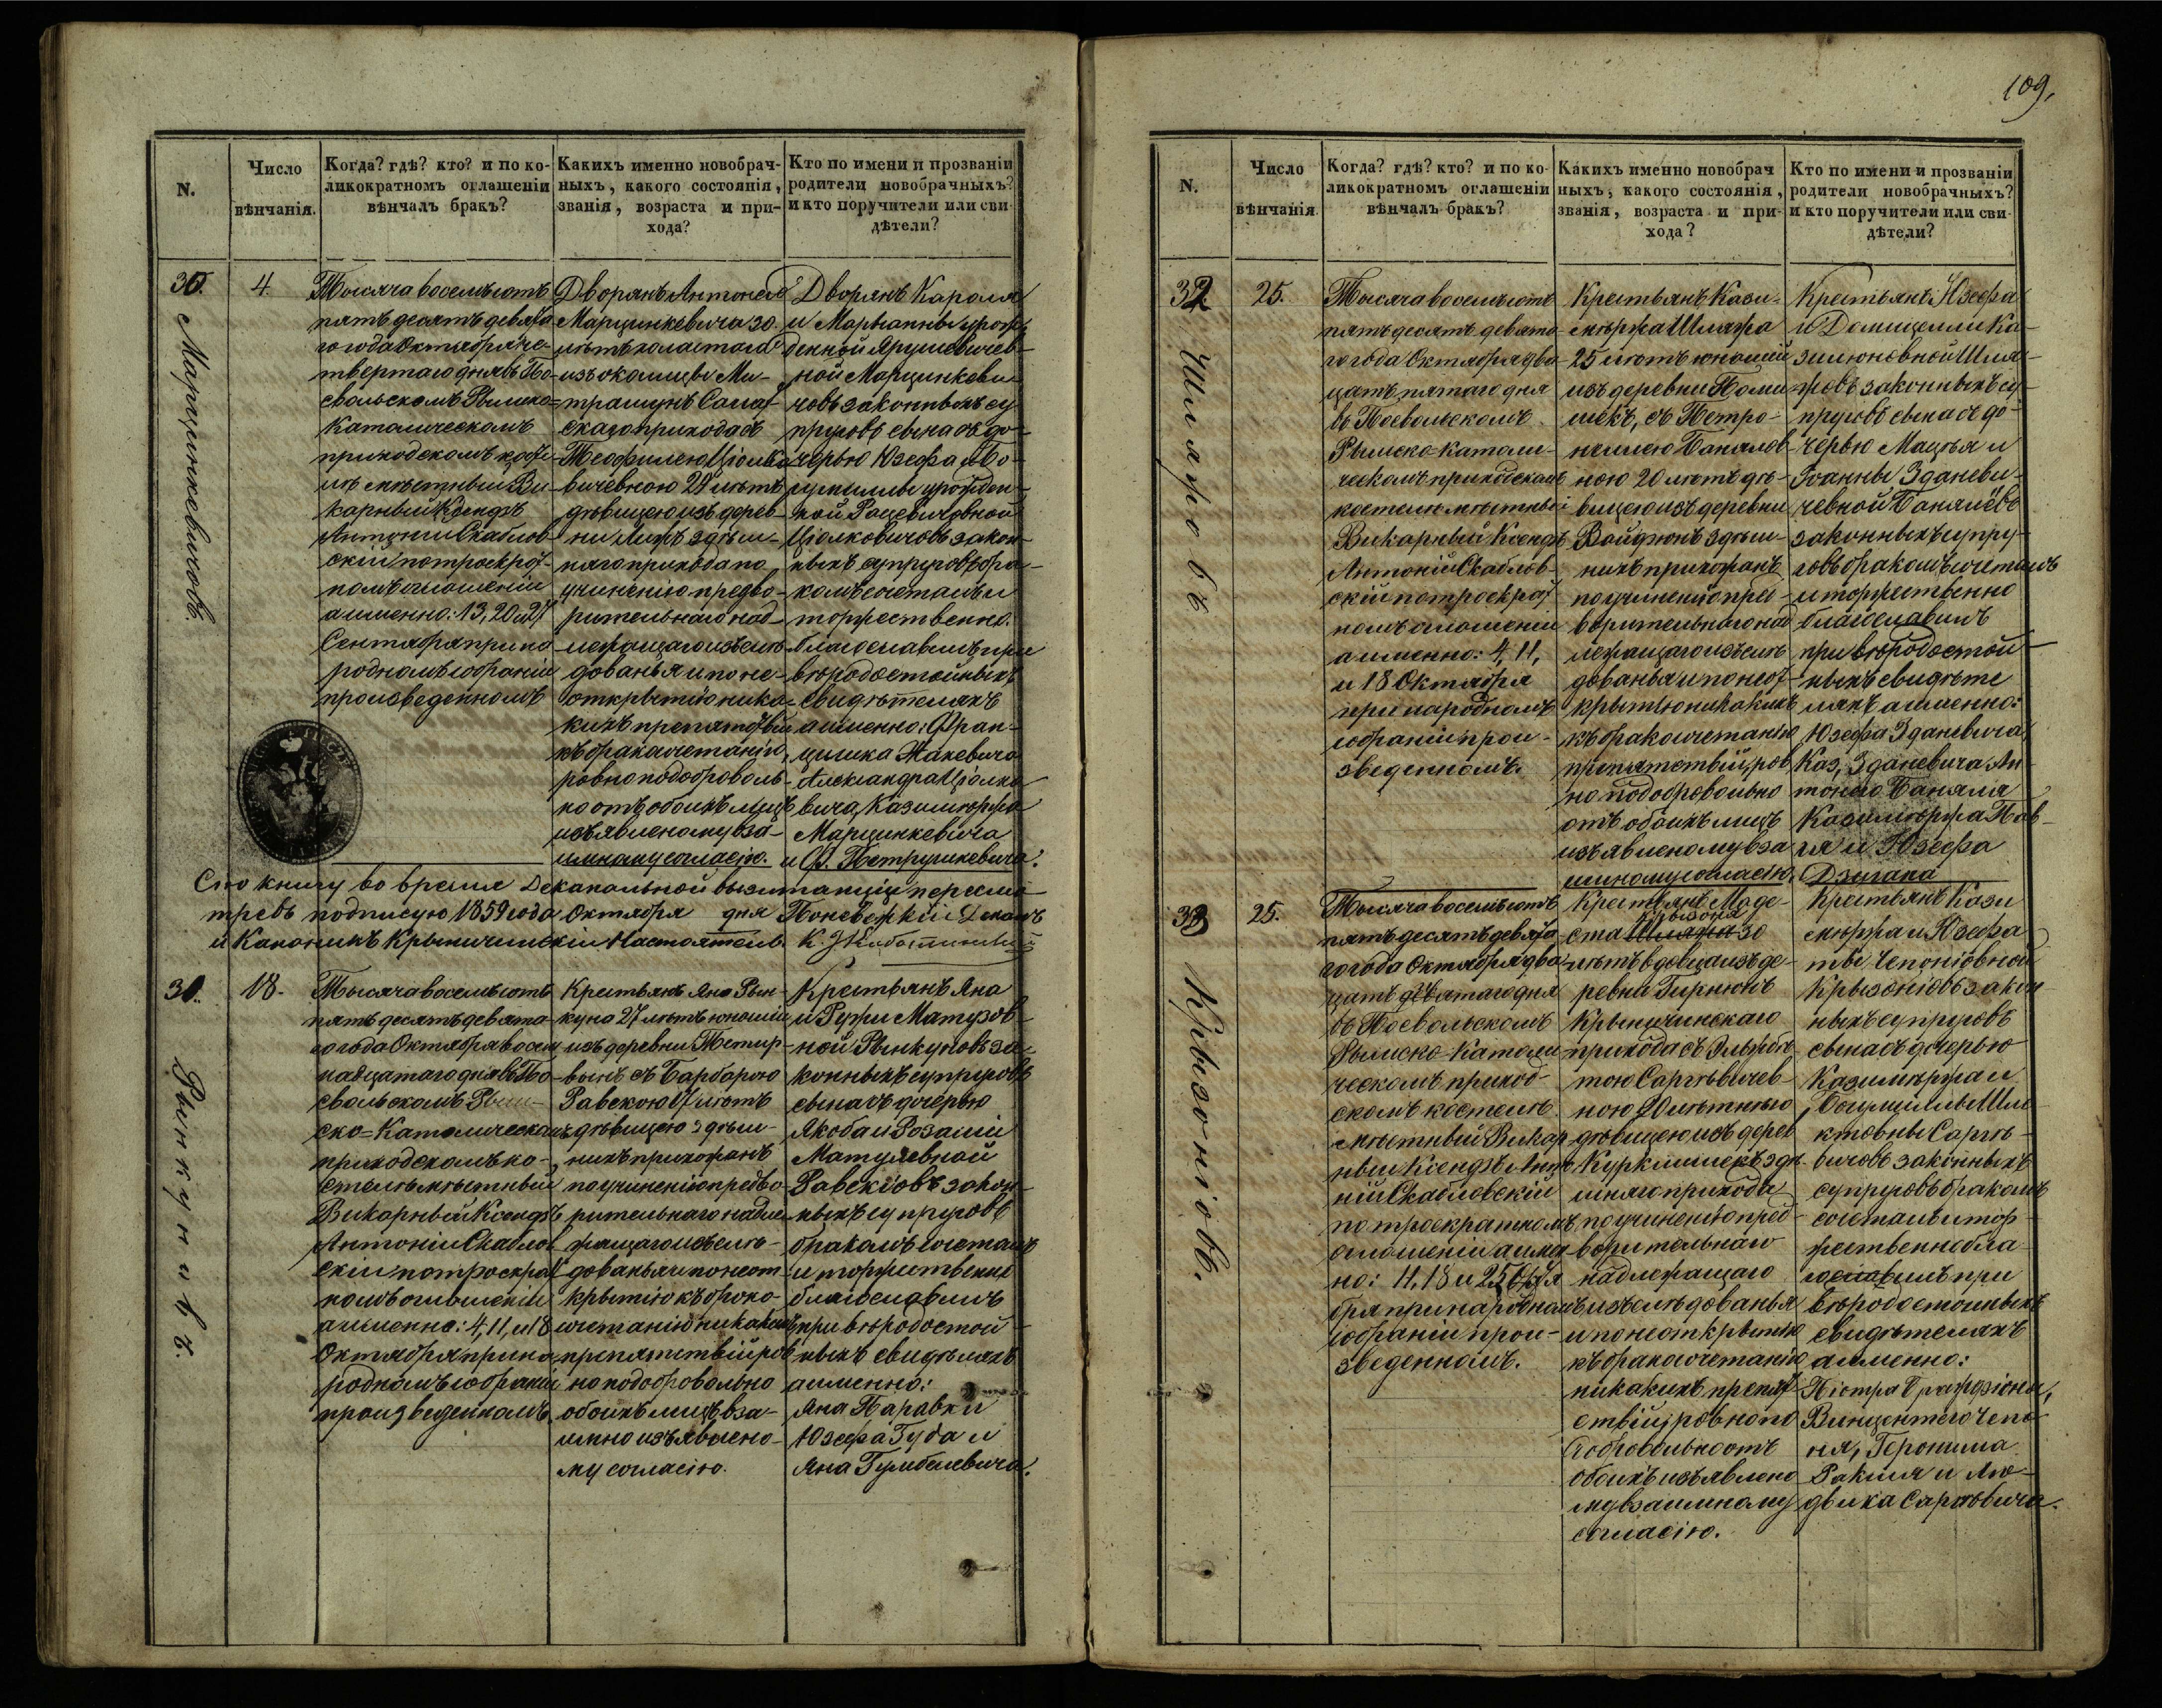 N.
Число
вѣнчанія.
Когда? гдѣ? кто? и по ко-
ликократномъ оглашеніи
вѣнчалъ бракъ?
Какихъ именно новобрач-
ныхъ, какого состоянія,
званія, возраста и при-
хода?
Кто по имени и прозванію
родители новобрачныхъ?
и кто поручители или сви-
дѣтели?
30.
Марцинкевичовъ.
4.
Тысяча восемьсотъ
пятьдесятъ девята
го года Октября че-
твертаго дня въ По-
евольскомъ Римско-
Католическомъ
приходскомъ косте-
лѣ мѣстный Ви-
карный Ксендзъ
Антоній Скаблов-
скій по троекрат-
номъ оглашеніи
а именно: 13, 20 и 27
Сентября при на
родномъ собраніи
произведенномъ
Дворянъ Антонія
Марцинкевича 30.
лѣтъ холостаго
изъ околицы Ми-
трашунъ
скаго прихода съ
Теофилею Ціолко
вичевною 24 лѣтъ
дѣвицею изъ дерев-
ни здѣш-
няго прихода по
учиненію предво-
рительнаго над-
лежащаго изслѣ-
дованья и по не-
открытію ника-
кихъ препятствій
къ бракосочетанію,
ровно по доброволь-
но отъ обоихъ лицъ
изъявленому вза-
имному согласію.
Дворянъ Кароля
и Марьанны урож-
денной Ярушевичев-
ной Марцинкеви
човъ законныхъ су
пруговъ сына съ до-
черью Юзефа и Бо-
гумилы урожден-
ной Рацевичовной
Ціолковичовъ закон-
ныхъ супруговъ бра-
комъ сочеталъ и
торжественно.
благославилъ при
вѣродостойныхъ
свидѣтеляхъ
а именно: Фран-
цишка Жакевича
Александра Ціолко
вича, Казимѣржа
Марцинкевича
и Ф. Петрушкевича.
Сію книгу во время Деканальной визитаціи пересмо-
трѣвъ подписую 1859 года Октября дня Поневѣжскій Деканъ
и Каноникъ Крыничинскій Настоятель К.
31.
Рынкунъ.
18.
Тысяча восемьсотъ
пятьдесятъ девята-
го года Октября восем
надцатаго дня въ По-
евольскомъ Рим-
ско-Католическомъ
приходскомъ ко-
стелѣ мѣстный
Викарный Ксендзъ
Антоній Скаблов
скій по троекрат
номъ оглашеніи
а именно: 4, 11, и 18
Октября при на
родномъ собраніи
произведенномъ
Крестьянъ Яна Рын-
куна 27 лѣтъ юношу
изъ деревни
съ Барбарою
Равскою 17 лѣтъ
дѣвицею здѣш-
нихъ прихожанъ
по учиненію предво
рительнаго надле-
жащаго изслѣ-
дованья и по неот-
крытію къ брако-
сочетанію никакихъ
препятствій ров
но по добровольно
обоихъ лицъ вза-
имно изъявлено-
му согласію.
Крестьянъ Яна
и Матузов-
ной Рынкуновъ за-
конныхъ супруговъ
сына съ дочерью
Якоба и Розаліи
Матулевной
Равскіовъ закон-
ныхъ супруговъ
бракомъ сочеталъ
и торжественно
благославилъ
при вѣродостой-
ныхъ свидѣтеляхъ
а именно:
Яна Паравки
Юзефа Гуда и
Яна Гумбелевича.
109.
N.
Число
вѣнчанія.
Когда? гдѣ? кто? и по ко-
ликократномъ оглашеніи
вѣнчалъ бракъ?
Какихъ именно новобрач
ныхъ, какого состоянія,
званія, возраста и при-
хода?
Кто по имени и прозванію
родители новобрачныхъ?
и кто поручители или сви-
дѣтели?
32.
Шляжовъ
25.
Тысяча восемьсотъ
пятьдесятъ девята-
го года Октября два-
цать пятаго дня
въ Поевольскомъ
Римско-Католи-
ческомъ приходскомъ
костелѣ мѣстный
Викарный Ксендзъ
Антоній Скаблов-
скій по троекрат
номъ оглашеніи
а именно: 4, 11,
и 18 Октября
при народномъ
собраніи прои-
зведенномъ.
Крестьянъ Кази-
мѣржа Шляжа
25 лѣтъ юношій
изъ деревни
съ Петро-
нелею Банялов-
ною 20 лѣтъ дѣ-
вицею изъ деревни
Войдюнъ здѣш-
нихъ прихожанъ
по учиненію пред-
ворительнаго над
лежащаго изслѣ-
дованья и по неот
крытію никакихъ
къ бракосочетанію
препятствій, ров
но по добровольно
отъ обоихъ лицъ
изъявленому вза
имному согласію.
Крестьянъ Юзефа
и Домицелли Ка-
зимѣновной Шля-
жовъ законныхъ су-
пруговъ сына съ до-
черью Мацѣя и
Іоанны Зданеви-
чевной Банялёвъ
законныхъ супру-
говъ бракомъ сочеталъ
и торжественно
благославилъ
при вѣродостой-
ныхъ свидѣте
ляхъ а именно:
Юзефа Зданевича,
Каз. Зданевича Ан-
тонего Баняля
Казимѣржа Пав-
ля и Юзефа
Дзигана
33
Крызоніовъ.
25.
Тысяча восемьсотъ
пятьдесятъ девята
го года Октября два
цать пятаго дня
въ Поевольскомъ
Римско-Католи
ческомъ приход-
скомъ костелѣ
мѣстный Викар
ный Ксендзъ Анто
ній Скабловскій
по троекратномъ
оглашеніи а имен
но: 11, 18 и 25 Октя
бря при народномъ
собраніи прои-
зведенномъ.
Крестьянъ Моде-
Крызона
ста Шляжа 30
лѣтъ вдовца изъ де-
ревни Гирнюнъ
Крыничинскаго
прихода съ Эльжбѣ
тою Саргѣвичев-
ною 20 лѣтнею
дѣвицею изъ дерев
Куркишекъ здѣ
шняго прихода
по учиненію пред-
ворительнаго
надлежащаго
изслѣдованья
и по неоткрытію
къ бракосочетанію
никакихъ препят
ствій, ровно по
добровольно отъ
обоихъ изъявлено
му взаимному
согласію.
Крестьянъ Кази
мѣржа и Юзефа
ты Чепоніовной
Крызоніовъ закон
ныхъ супруговъ
сына съ дочерью
Казимѣржа и
Богумилы
Саргѣ-
вичовъ законныхъ
супруговъ бракомъ
сочеталъ и тор-
жественно бла-
гославилъ при
вѣродостойныхъ
свидѣтеляхъ
а именно:
Піотра
Винцентего Чепо-
ня, Геронима
Ракшя и Лю-
двика Саргѣвича.